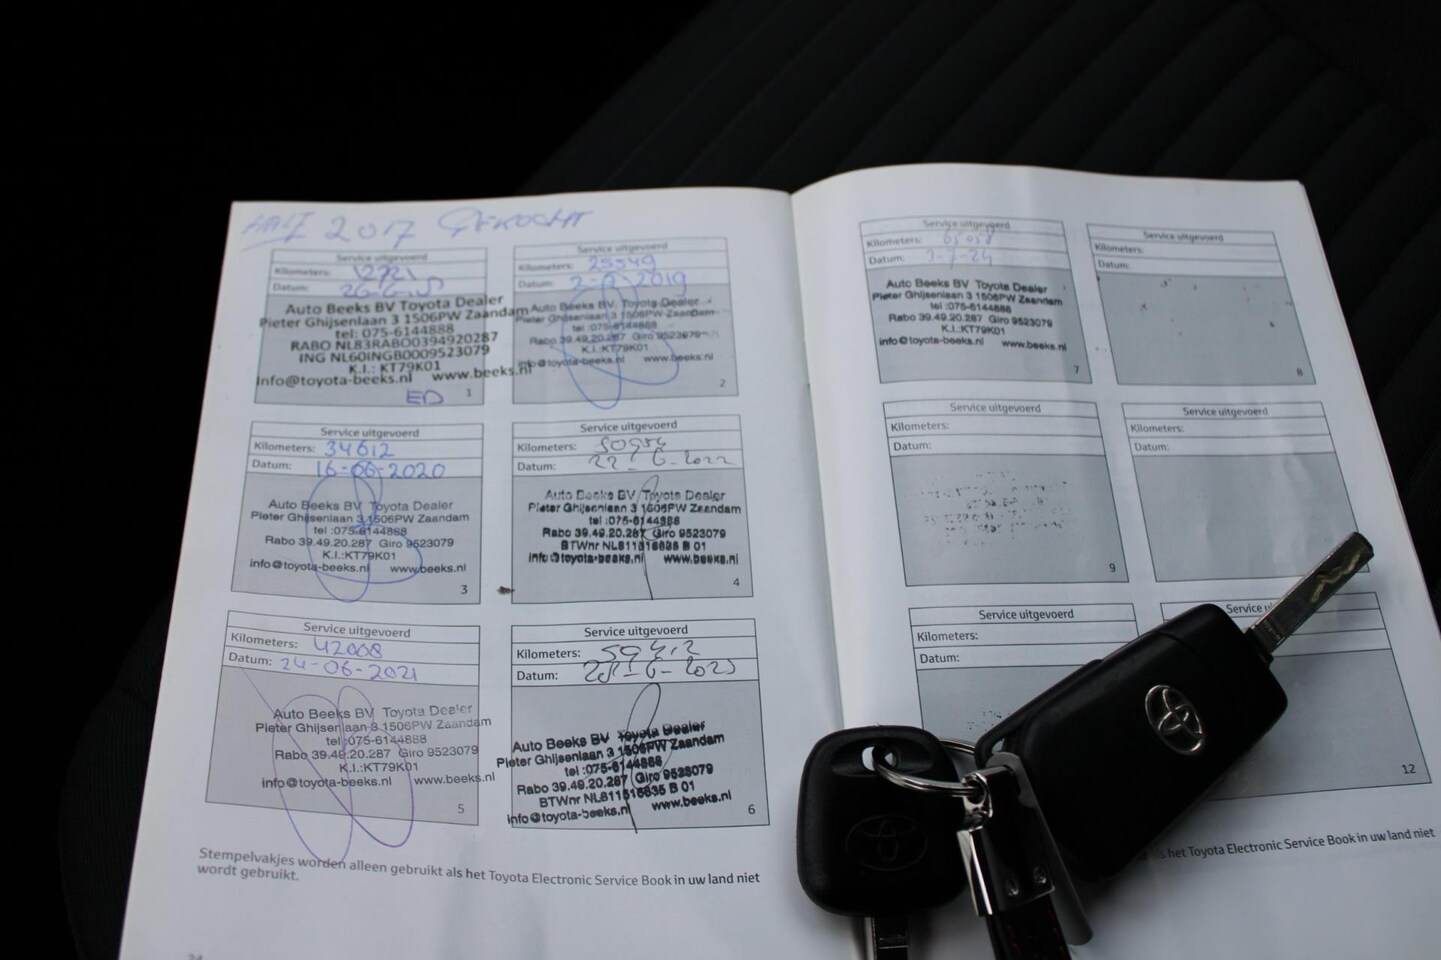 HALF 2017 GEKOCHT
Service uitgevoerd
Kilometers: 12721
Datum:
Auto Beeks BV Toyota Dealer
Pieter Ghijsenlaan 3 1506PW Zaandam
tel: 075-6144888
RABO NL83RABO0394920287
ING NL60INGB0009523079
K.I.: KT79K01
info@toyota-beeks.nl www.beeks.nl
ED 1
Service uitgevoerd
Kilometers: 25549
Datum: 2019
Auto Beeks BV Toyota Dealer
Pieter Ghijsenlaan 3 1506PW Zaandam
tel :075-6144888
Rabo 39.49.20.287 Giro 9523079
K.I.:KT79K01
info@toyota-beeks.nl www.beeks.nl
2
Service uitgevoerd
Kilometers: 34612
Datum: 16-06-2020
Auto Beeks BV Toyota Dealer
Pieter Ghijsenlaan 3 1506PW Zaandam
tel :075-6144888
Rabo 39.49.20.287 Giro 9523079
K.I.:KT79K01
info@toyota-beeks.nl www.beeks.nl
3
Service uitgevoerd
Kilometers: 50954
Datum: 22-6-2022
Auto Beeks BV Toyota Dealer
Pieter Ghijsenlaan 3 1506PW Zaandam
tel :075-6144888
Rabo 39.49.20.287 Giro 9523079
BTWnr NL811516835 B 01
info@toyota-beeks.nl www.beeks.nl
4
Service uitgevoerd
Kilometers: 42008
Datum: 24-06-2021
Auto Beeks BV Toyota Dealer
Pieter Ghijsenlaan 3 1506PW Zaandam
tel :075-6144888
Rabo 39.49.20.287 Giro 9523079
K.I.:KT79K01
info@toyota-beeks.nl www.beeks.nl
5
Service uitgevoerd
Kilometers: 59412
Datum: 28-6-2023
Auto Beeks BV Toyota Dealer
Pieter Ghijsenlaan 3 1506PW Zaandam
tel :075-6144888
Rabo 39.49.20.287 Giro 9523079
BTWnr NL811516835 B 01
info@toyota-beeks.nl www.beeks.nl
6
Stempelvakjes worden alleen gebruikt als het Toyota Electronic Service Book in uw land niet
wordt gebruikt.
Service uitgevoerd
Kilometers:
Datum:
Auto Beeks BV Toyota Dealer
Pieter Ghijsenlaan 3 1506PW Zaandam
tel :075-6144888
Rabo 39.49.20.287 Giro 9523079
K.I.:KT79K01
info@toyota-beeks.nl www.beeks.nl
7
Service uitgevoerd
Kilometers:
Datum:
8
Service uitgevoerd
Kilometers:
Datum:
9
Service uitgevoerd
Kilometers:
Datum:
Service uitgevoerd
Kilometers:
Datum:
Service
12
als het Toyota Electronic Service Book in uw land niet